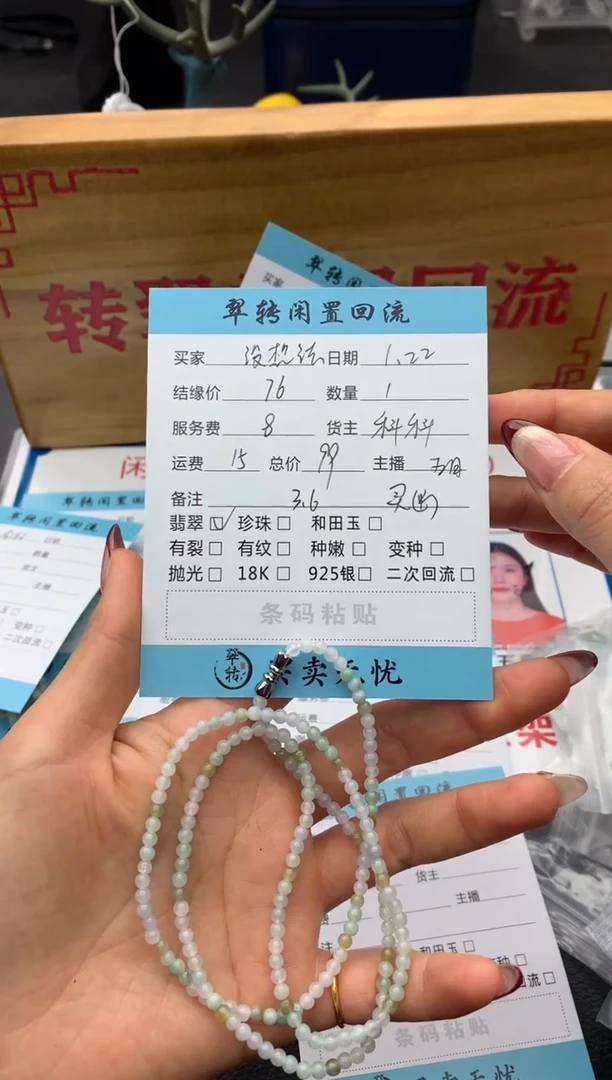 转翠 回流
翠转闲置回流
买家 没想法 日期 1.22
结缘价 76 数量 1
服务费 8 货主 科科
运费 15 总价 99 主播
备注 3.6 买断
翡翠☑ 珍珠□ 和田玉□
有裂□ 有纹□ 种嫩□ 变种□
抛光□ 18K□ 925银□ 二次回流□
条码粘贴
翠转 卖无忧
翠转闲
买家
闲
翠转闲置回流
数量
主播
变种□
二次回流□
架
闲置回流
货主
主播
和田玉□
变种□
回流□
条码粘贴
闲置回流